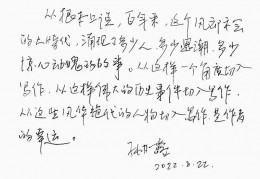 从根本上说，百年来，这个风云未合
的大时代，涌现了多少人，多少思潮，多少
惊心动魄的事。从这样一个角度切入
写作，从这样伟大的历史事件切入写作，
从这些风华绝代的人物切入写作，是作者
的幸运。
2022.8.22.